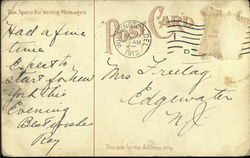 This Space for Writing Messages
POST CARD
DEL.
1912
Had a fine
time
Expect to
start for New
York this
Evening
Best wishes
Ray.
Mrs Freitag
Edgewater
N.J.
This side for the Address only